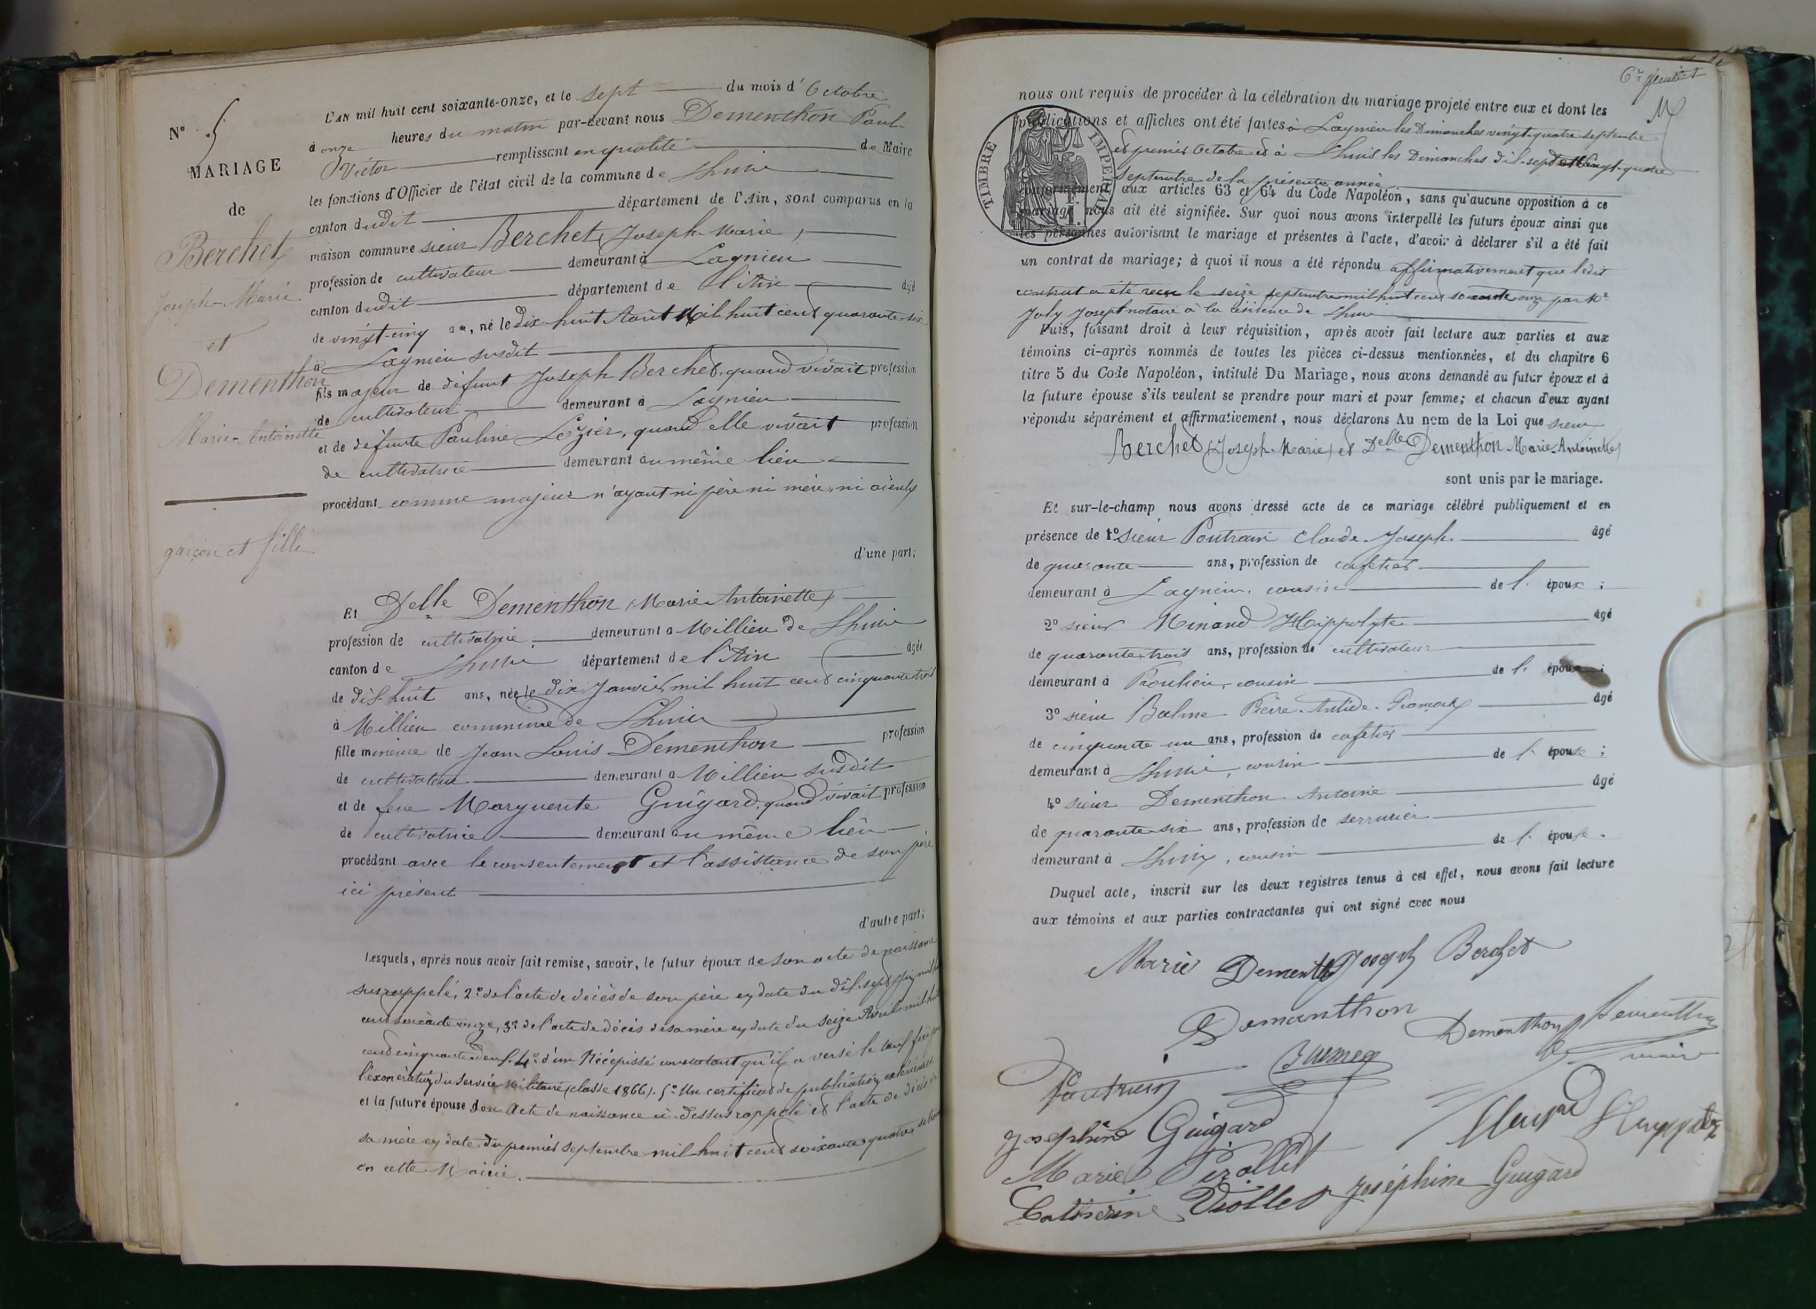 N° 5
MARIAGE
de
Berchet
Joseph-Marie
et
Dementhon
Marie-Antoinette
garçon et fille
L'AN mil huit cent soixante-onze, et le sept du mois d'Octobre
à onze heures du matin par-devant nous Dementhon Paul-
Victor remplissant en qualité de Maire
les fonctions d'Officier de l'état civil de la commune de Lhuis
canton dudit département de l'Ain, sont comparus en la
maison commune sieur Berchet, Joseph-Marie,
profession de cultivateur demeurant à Lagnieu
canton dudit département de l'Ain âgé
de vingt-cinq ans, né le dix huit Août Mil huit cent quarante-six
à Lagnieu susdit
fils majeur de défunt Joseph Berchet, quand vivait profession
de cultivateur demeurant à Lagnieu
et de défunte Pauline Lozier, quand elle vivait profession
de cultivatrice demeurant au même lieu
procédant comme majeur n'ayant ni père ni mère, ni aïeuls
d'une part;
Et Delle Dementhon (Marie Antoinette)
profession de cultivatrice demeurant à Millieu de Lhuis
canton de Lhuis département de l'Ain âgée
de dix huit ans, née le dix Janvier mil huit cent cinquante trois
à Millieu commune de Lhuis
fille mineure de Jean Louis Dementhon profession
de cultivateur demeurant à Millieu susdit
et de feue Marguerite Guigard, quand vivait profession
de cultivatrice demeurant au même lieu
procédant avec le consentement et l'assistance de son père
ici présent
d'autre part;
Lesquels, après nous avoir fait remise, savoir, le futur époux de son acte de naissance
susrappelé, 2° de l'acte de décès de son père en date du dix-sept
3° de l'acte de décès de sa mère en date du seize
4° d'un Récépissé constatant qu'il a versé le
l'exonération du service Militaire (classe 1866). 5° Un certificat de publication
et la future épouse son acte de naissance ci-dessus rappelé et l'acte de décès de
sa mère en date du premier septembre mil huit cent soixante quatre
en cette Mairie.
nous ont requis de procéder à la célébration du mariage projeté entre eux et dont les
publications et affiches ont été faites à Lagnieu les Dimanches vingt-quatre septembre
et premier Octobre et à Lhuis les Dimanches dix-sept et vingt-quatre
Septembre de la présente année
TIMBRE IMPERIAL
conformément aux articles 63 et 64 du Code Napoléon, sans qu'aucune opposition à ce
mariage nous ait été signifiée. Sur quoi nous avons interpellé les futurs époux ainsi que
les personnes autorisant le mariage et présentes à l'acte, d'avoir à déclarer s'il a été fait
un contrat de mariage; à quoi il nous a été répondu affirmativement que ledit
contrat a été reçu le seize septembre mil huit cent soixante onze par Me
Joly Joseph notaire à la résidence de Lhuis
Puis, faisant droit à leur réquisition, après avoir fait lecture aux parties et aux
témoins ci-après nommés de toutes les pièces ci-dessus mentionnées, et du chapitre 6
titre 5 du Code Napoléon, intitulé Du Mariage, nous avons demandé au futur époux et à
la future épouse s'ils veulent se prendre pour mari et pour femme; et chacun d'eux ayant
répondu séparément et affirmativement, nous déclarons Au nom de la Loi que sieur
Berchet (Joseph-Marie) et Delle Dementhon Marie-Antoinette
sont unis par le mariage.
Et sur-le-champ nous avons dressé acte de ce mariage célébré publiquement et en
présence de 1° sieur Poutrain Claude-Joseph âgé
de quarante ans, profession de cafetier
demeurant à Lagnieu, cousin de l' époux;
2° sieur Minand Hippolyte âgé
de quarante trois ans, profession de cultivateur
demeurant à Proulieu, cousin de l' époux;
3° sieur Balme Pierre-Antide-François âgé
de cinquante un ans, profession de cafetier
demeurant à Lhuis, cousin de l' épouse;
4° sieur Dementhon Antoine âgé
de quarante six ans, profession de serrurier
demeurant à Lhuis, cousin de l' épouse.
Duquel acte, inscrit sur les deux registres tenus à cet effet, nous avons fait lecture
aux témoins et aux parties contractantes qui ont signé avec nous
Marie Dementhon Joseph Berchet
Demanthon
Dementhon
maire
Josephine Guigard
Marie Pirollet
Catherine Viollet Joséphine Guigard